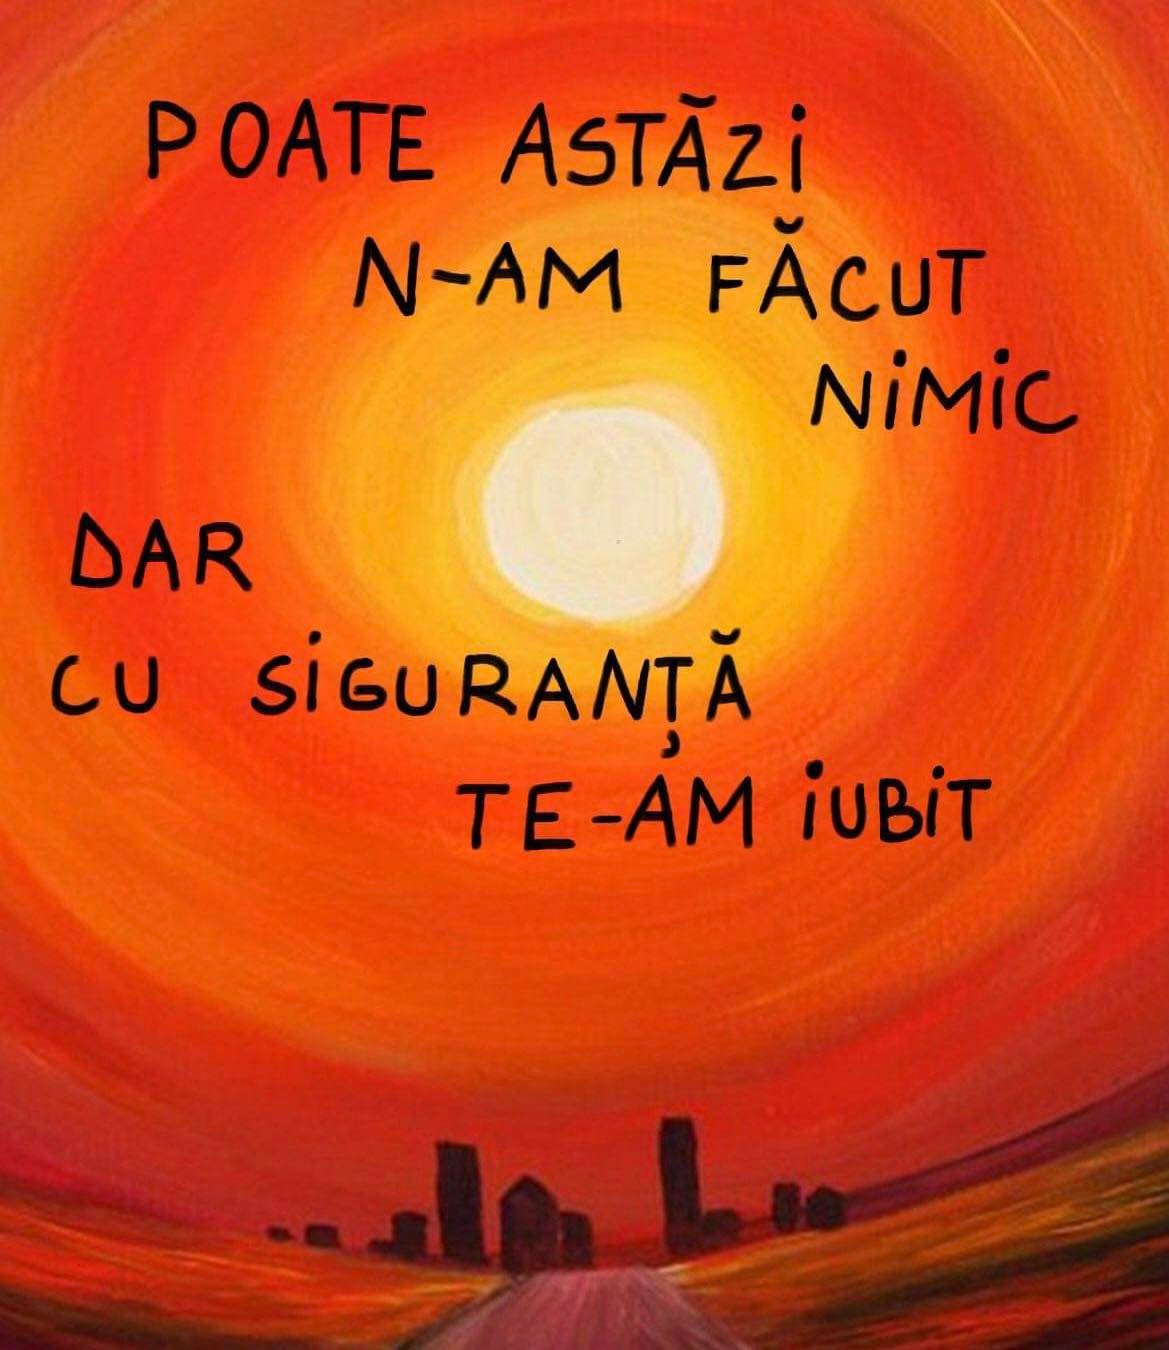 POATE ASTĂZI
N-AM FĂCUT
NIMIC
DAR
CU SIGURANȚĂ
TE-AM IUBIT